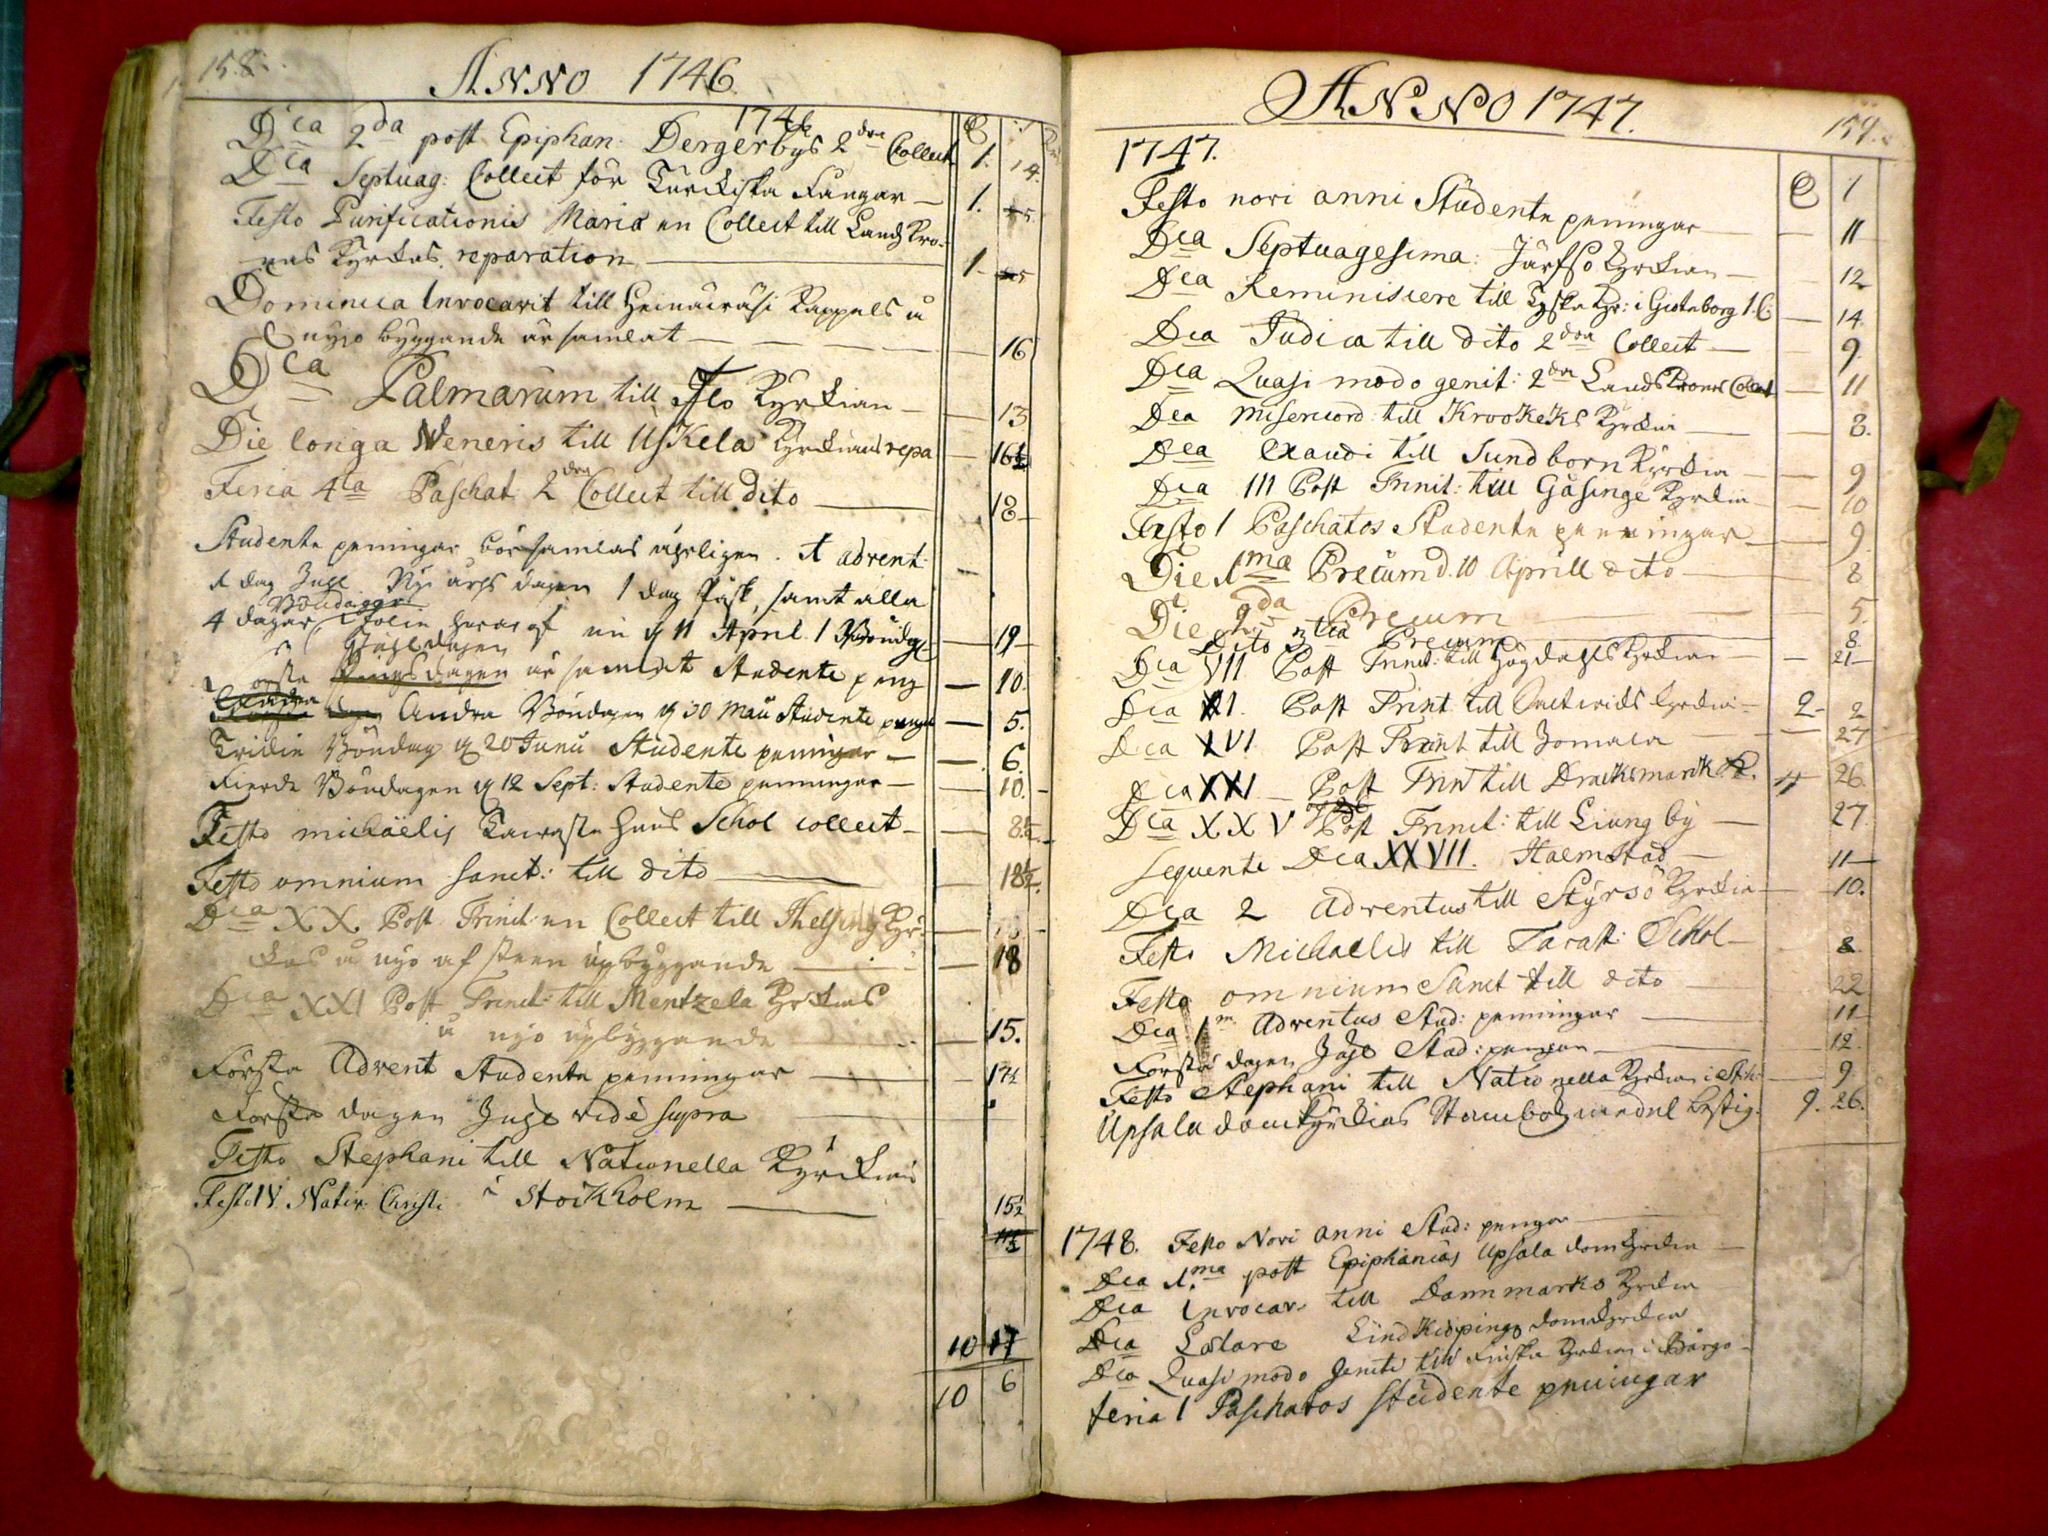 158.
ANNO 1746.
1746
Dca 2da post Epiphan: Dergerbys 2dra Collect 1. 14.
Dca Septuag: Collect för Turckiska Fångar — 1.
Festo Purificationis Mariæ en Collect till Landz Kro-
nas Kyrckas reparation — 1
Dominica Invocavit till Kappels
nyjo byggande är samlat — 16
Dca Palmarum till Kyrckian — 13
Die longa Veneris till Uskela Kyrckians repa — 16½
Feria 4ta Paschat: 2dra Collect till dito — 18
Studente peningar bör samlas åhrligen. 1 advent:
1 dag Juhl Nyi åhrs dagen 1 dag Påsk, samt alla
4 Böndagar
dagar 11 April 1 Böndag — 19
är samlat Studente peng — 10.
Andra Böndagen d 30 Maii Studente pengar — 5.
Tridie Böndag d 20 Junii Studente peningar — 6.
Fierde Böndagen d 12 Sept: Studente penningar — 10.
Festo michäelis Tawaste huus Schol collect — 8½
Festo omnium Sanct: till dito — 18½.
Dca XX Post Trinit: en Collect till Thelsing Kyr-
kas u nyo af steen upbyggande — 18
Dca XXI Post Trinit: till Mentzela Kyrckas
u nyo upbyggande — 15.
Första Advent Studente penningar — 17½
Första dagen Juhl vide supra
Festo Stephani till Nationella Kyrckian
Festo IV. Nativ: Christi i Stockholm — 15½
10 17
10 6
159.
ANNO 1747.
1747.
Festo novi anni Studente peningar — 11
Dca Septuagesima: Järfsö Kyrckian — 12
Dca Reminiscere till Tyska Kyr: i Giöteborg 1. C: — 14.
Dca Judica till dito 2dra Collect — 9.
Dca Quasi modo genit: 2dra LandsKrones Collect — 11
Dca Misericord: till Krookeks Kyrckia — 8.
Dca Exaudi till Sundborn Kyrckia — 9
Dca III Post Trinit: till Gåsinge Kyrckia — 10
Festo 1 Paschatos Studente penningar — 9.
Die 1ma Precum d. 10 Aprill dito — 8
Die 2da Precum — 5.
Dito 3tia Precum — 8.
Dca VII Post Trinit: till Högdahls Kyrckia — 21
Dca XI. Post Trinit till Kyrckia — 2 2
Dca XVI Post Trinit till Jomala — 27
Dca XXI Post Trinit till Dracksmark K. 4 26.
Dca XXV Post Trinit: till Liungby — 27.
Sequente Dca XXVII. Halmstad — 11
Dca 2 Adventus till Styrsö Kyrckia — 10.
Festo Michaelis till Tavast: Schol — 8.
Festo omnium Sanct till dito — 22
Dca 1m Adventus Stud: penningar — 11
Första dagen Juhl Stud: pengar — 12.
Festo Stephani till Nationella Kyrckian i Stokh: — 9
Upsala domkyrckias 9. 26.
1748. Festo Novi anni Stud: pengar
Dca 1.ma post Epiphanias Upsala domkyrckia —
Dca Invocav: till Dannmarks Kyrckia
Dca Lætare Lindkiöpings domkyrckia
Dca Quasi modo Geniti till Finska Kyrckian i Börgo —
feria 1 Paschatos studente peningar